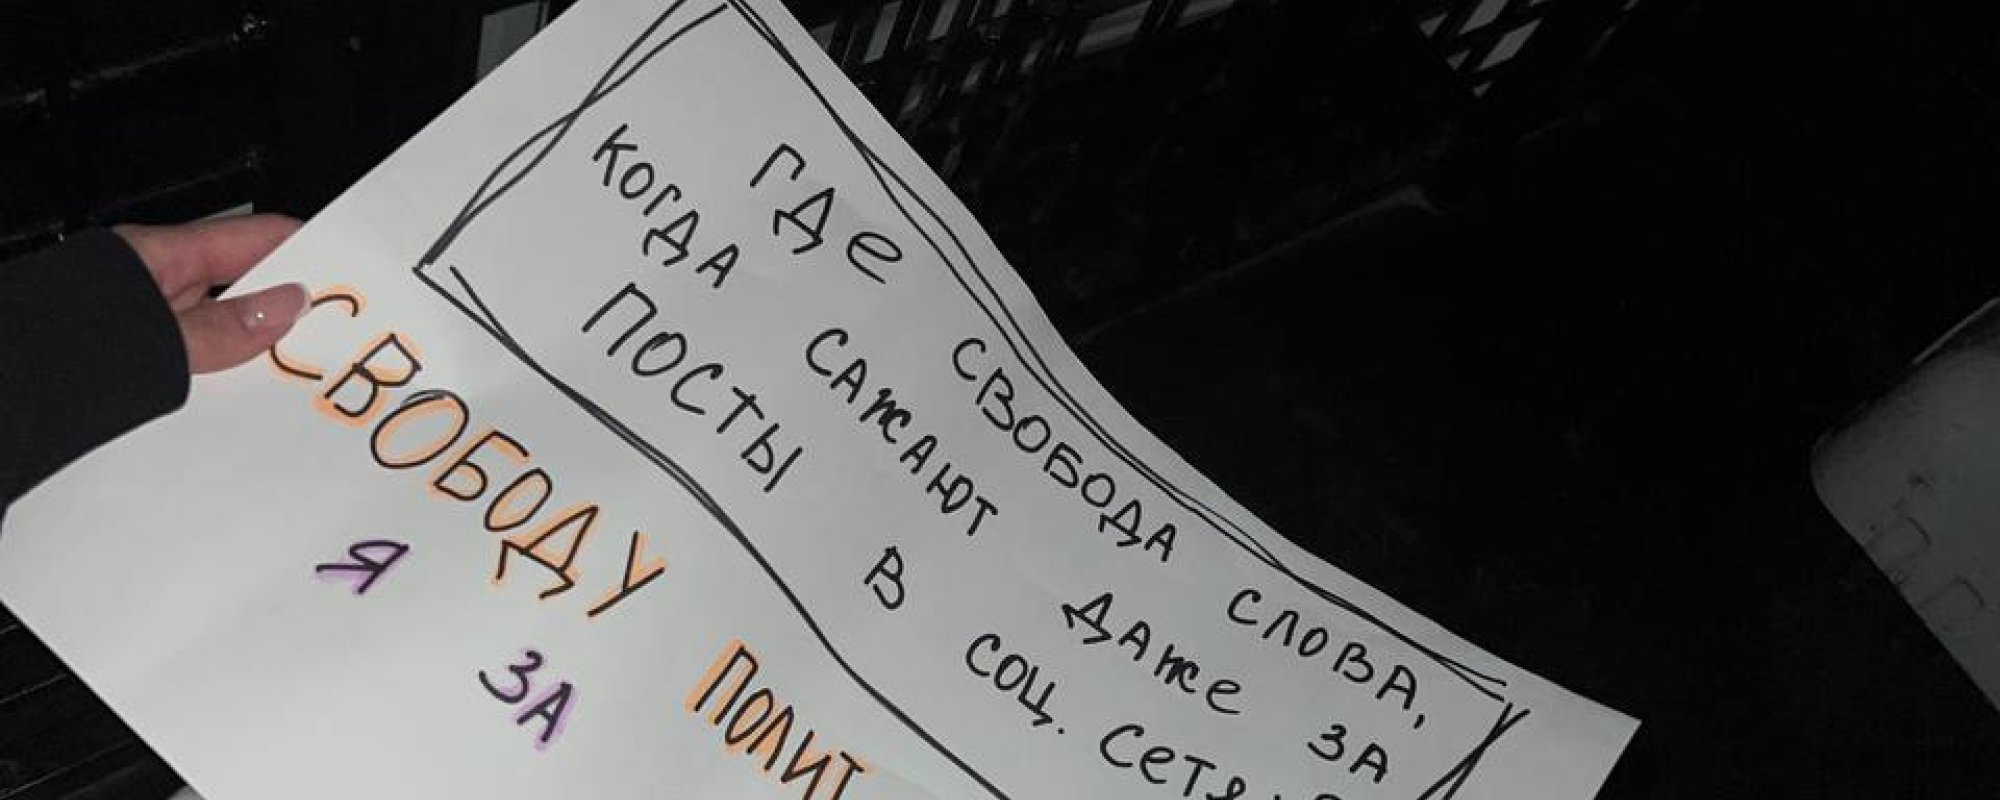 ГДЕ СВОБОДА СЛОВА,
КОГДА САЖАЮТ ДАЖЕ ЗА
ПОСТЫ В СОЦ. СЕТЯХ?
СВОБОДУ ПОЛИТ
Я ЗА